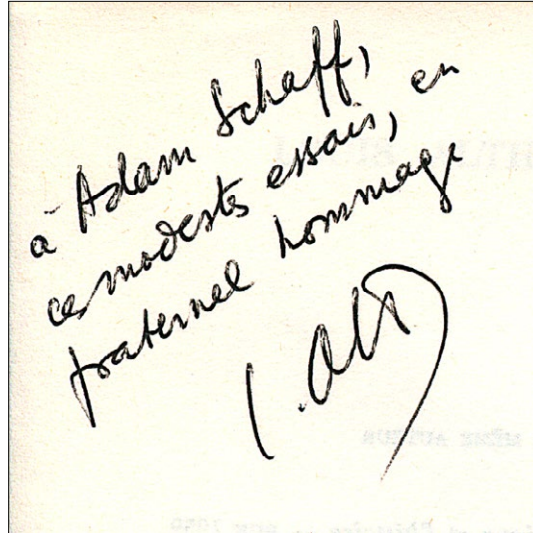 à Adam Schaff,
ces modestes essais, en
fraternel hommage
MÊME AUTEUR